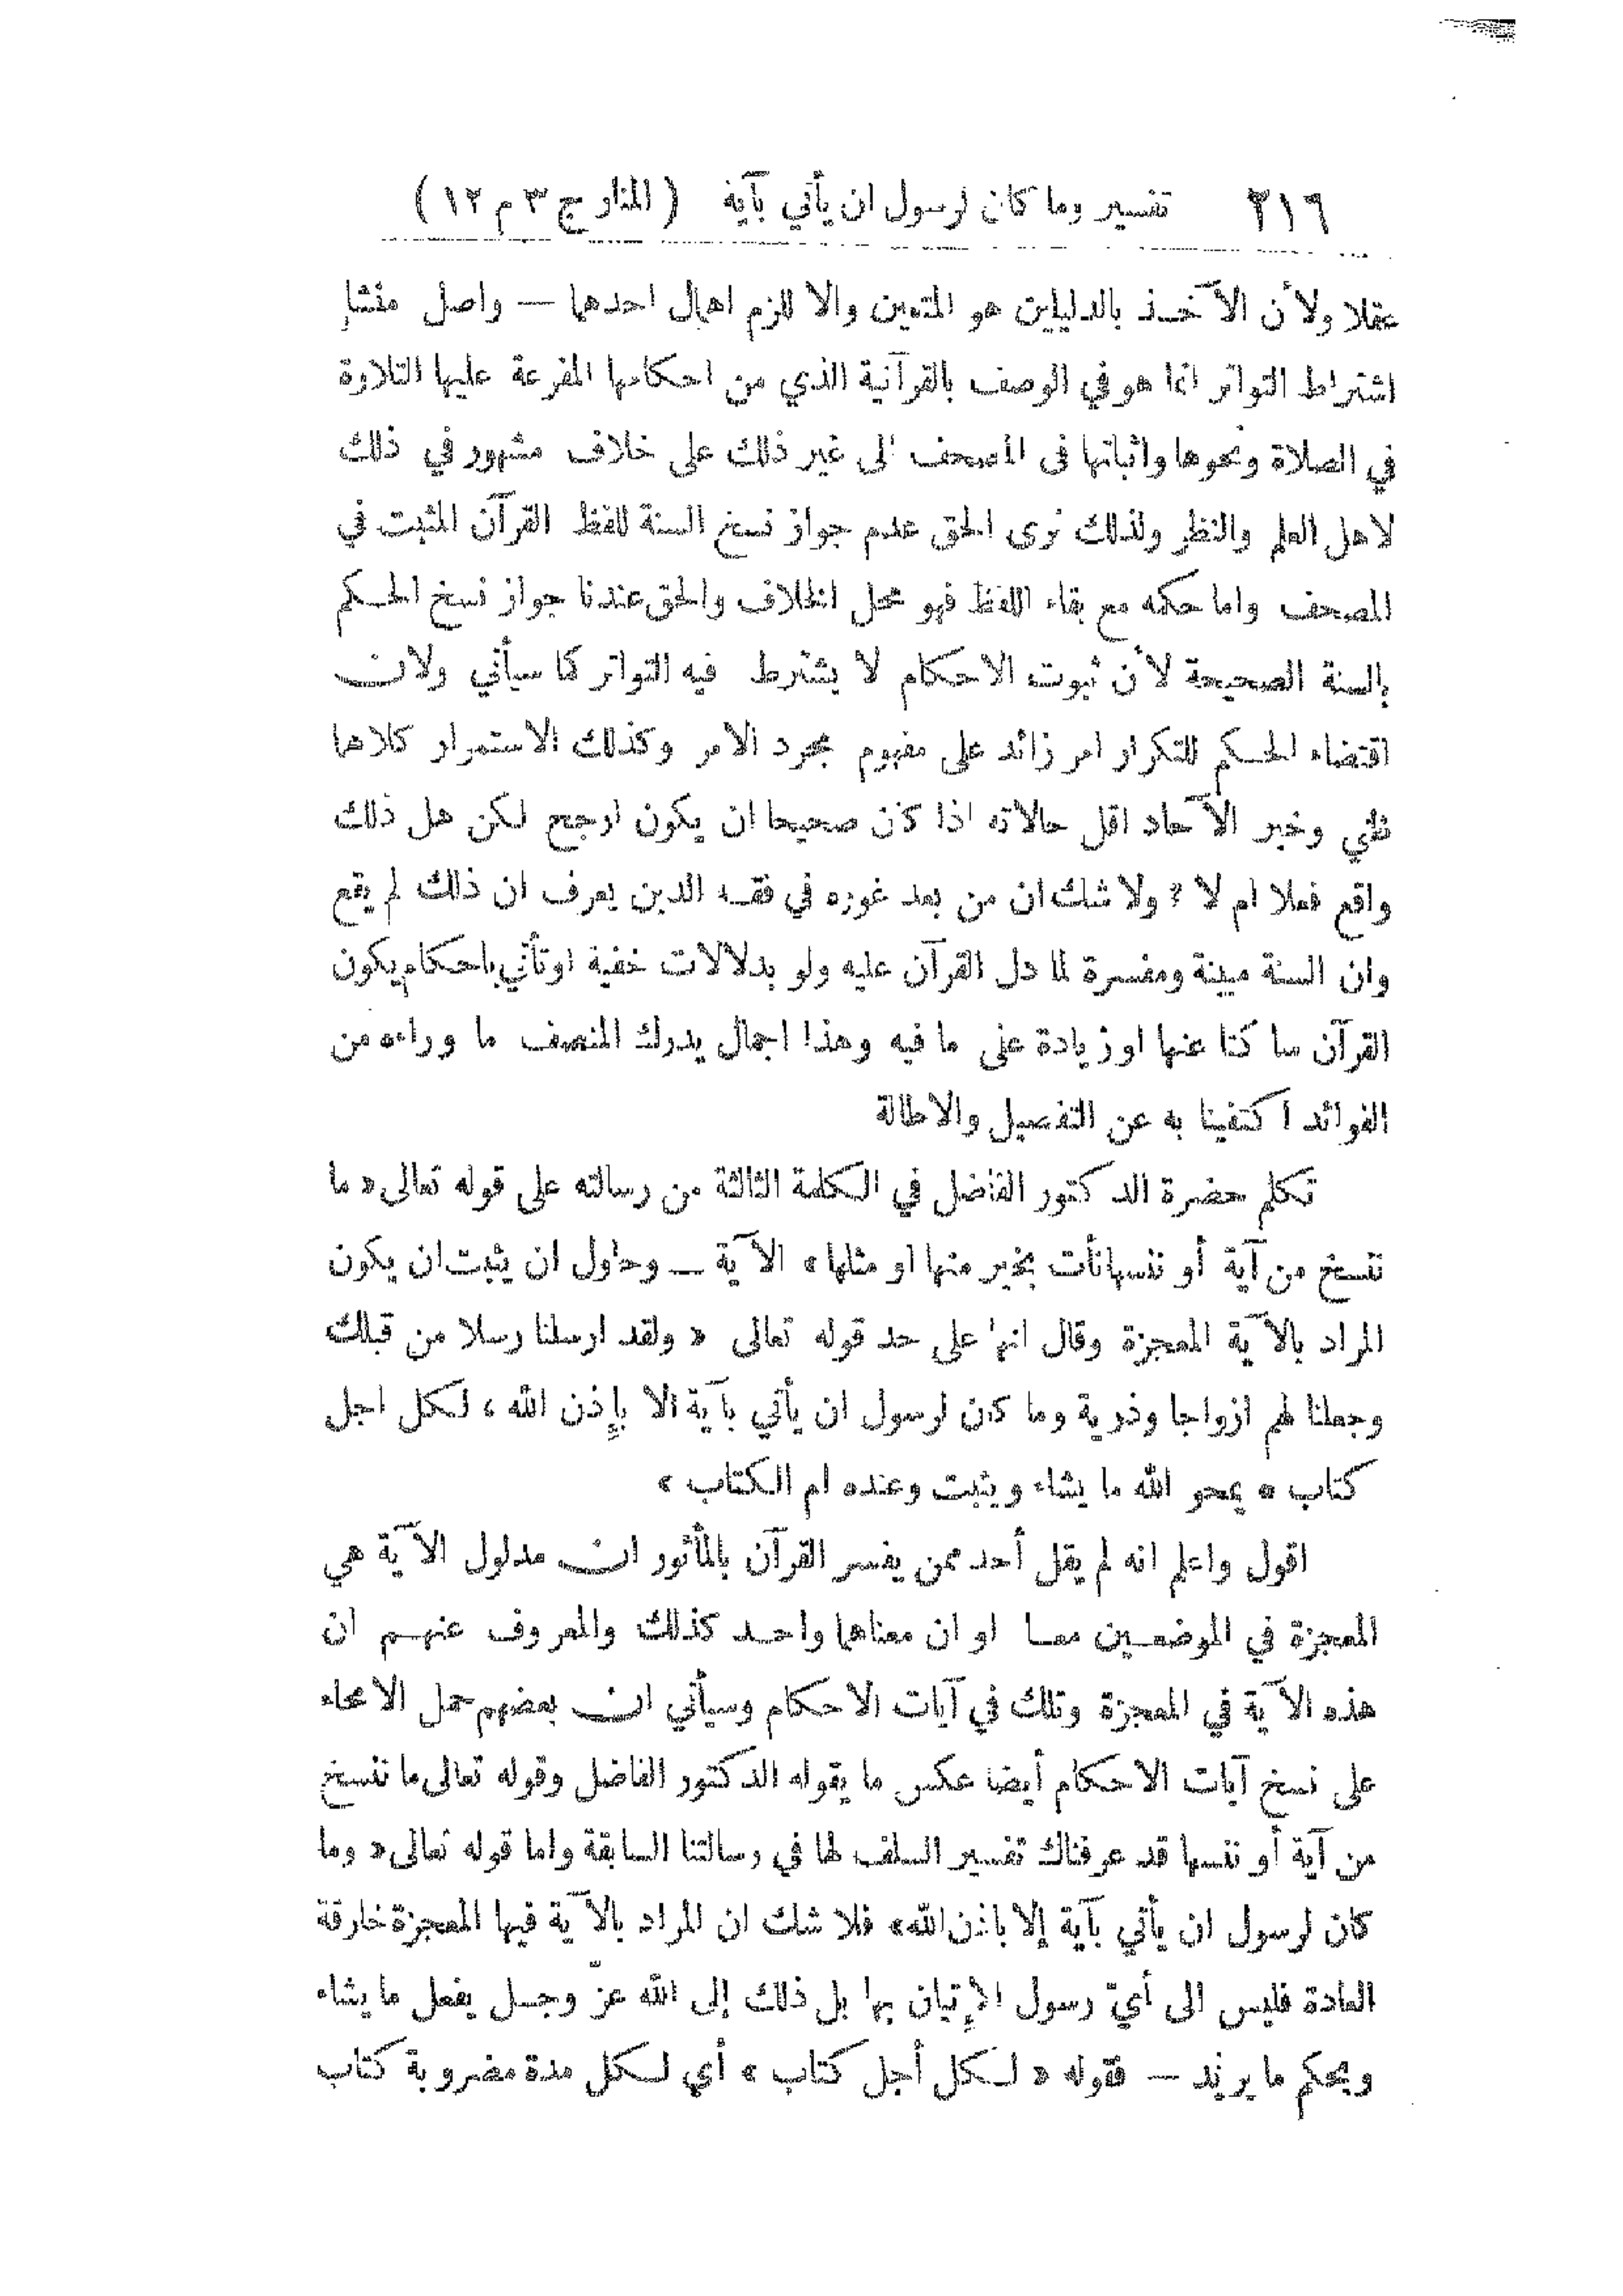 ٢١٦ تفسير وما كان لرسول ان يأتي بآية ( المنار ج ٣ م ١٢ )
عقلا ولأن الآخـذ بالدليلين هو المتعين والا للزم اهمال احدهما — واصل منشإ
اشتراط التواتر انما هو في الوصف بالقرآنية الذي من احكامها المفرعة عليها التلاوة
في الصلاة ونحوها واثباتها فى المصحف الى غير ذلك على خلاف مشهور في ذلك
لاهل العلم والنظر ولذلك نرى الحق عدم جواز نسخ السنة للفظ القرآن المثبت في
المصحف واما حكمه مع بقاء اللفظ فهو محل الخلاف والحق عندنا جواز نسخ الحـكم
بالسنة الصحيحة لأن ثبوت الاحكام لا يشترط فيه التواتر كما سيأتي ولان
اقتضاء الحـكم للتكرار امر زائد على مفهوم مجرد الامر وكذلك الاستمرار كلاهما
ظني وخبر الآحاد اقل حالاته اذا كان صحيحا ان يكون ارجح لكن هل ذلك
واقع فعلا ام لا ؟ ولا شك ان من بعد غوره في فقـه الدين يعرف ان ذلك لم يقع
وان السنة مبينة ومفسرة لما دل القرآن عليه ولو بدلالات خفية او تأتي باحكام يكون
القرآن سا كتا عنها او زيادة على ما فيه وهذا اجمال يدرك المنصف ما وراءه من
الفوائد ا كتفينا به عن التفصيل والاطالة
تكلم حضرة الد كتور الفاضل في الكلمة الثالثة من رسالته على قوله تعالى « ما
ننسخ من آية أو ننسها نأت بخير منها او مثلها » الآية — وحاول ان يثبت ان يكون
المراد بالآية المعجزة وقال انها على حد قوله تعالى « ولقد ارسلنا رسلا من قبلك
وجعلنا لهم ازواجا وذرية وما كان لرسول ان يأتي بآية الا بإذن الله ، لكل اجل
كتاب * يمحو الله ما يشاء ويثبت وعنده ام الكتاب »
اقول واعلم انه لم يقل أحد ممن يفسر القرآن بالمأثور ان مدلول الآية هي
المعجزة في الموضعـين معـا او ان معناهما واحـد كذلك والمعروف عنهـم ان
هذه الآية في المعجزة وتلك في آيات الاحكام وسيأتي ان بعضهم حمل الامحاء
على نسخ آيات الاحكام أيضا عكس ما يقوله الدكتور الفاضل وقوله تعالى ما ننسخ
من آية أو ننسها قد عرفناك تفسير السلف لها في رسالتنا السابقة واما قوله تعالى « وما
كان لرسول ان يأتي بآية إلا باذن الله » فلا شك ان المراد بالآية فيها المعجزة خارقة
العادة فليس الى أيّ رسول الإتيان بها بل ذلك إلى الله عزّ وجـل يفعل ما يشاء
ويحكم ما يريد — فقوله « لـكل أجل كتاب » أي لـكل مدة مضروبة كتاب